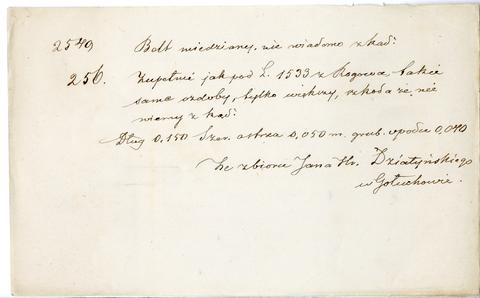 2549 Bolt miedziany, nie wiadomo zkąd.
256. Zupełnie jak pod L. 1533 z Rogowa, takie
same ozdoby, tylko większy, szkoda że nie
wiemy z kąd.
Dług 0,150 Szer. ostrza 0,050 m. grub. upodca 0,040
Ze zbioru Jana Hr. Działyńskiego
w Gołuchowie.